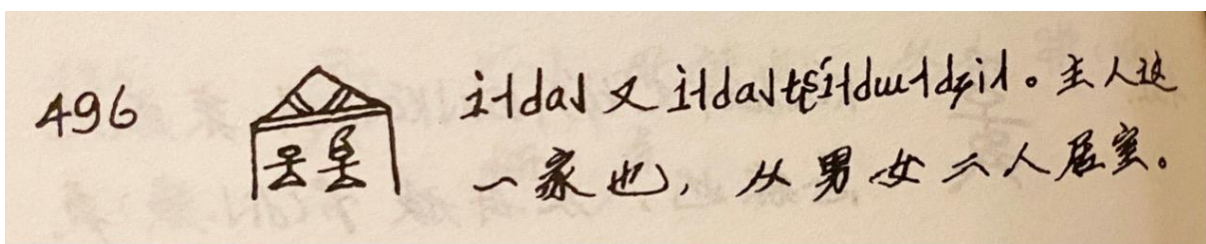 496 i˧da˩ 又 i˧da˩tʂʻi˧dɯ˧dʑi˩。主人这
一家也，从男女二人居室。